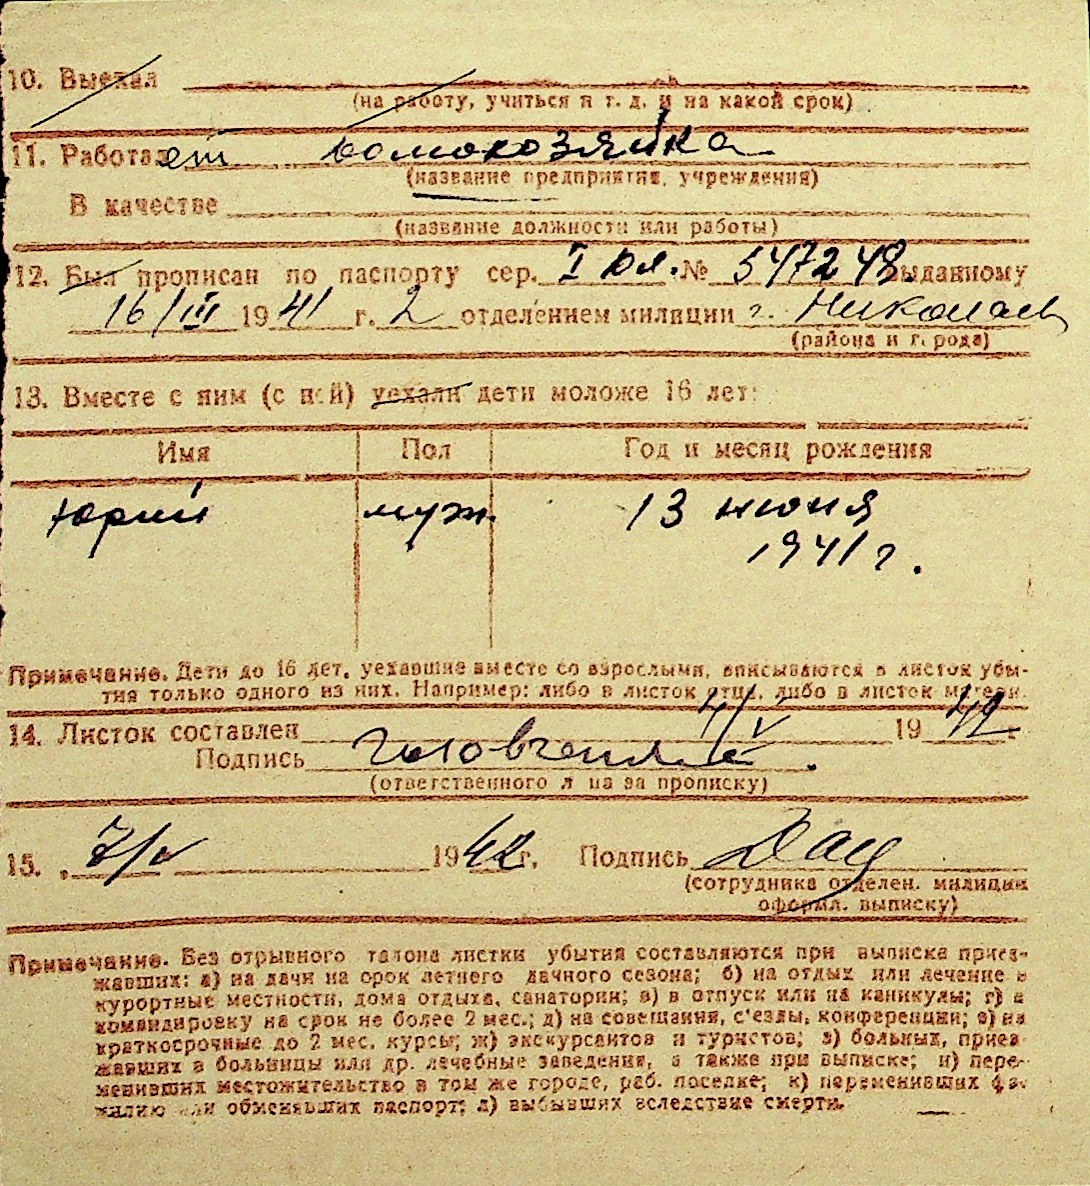 10. Выехал
(на работу, учиться и т. д. и на какой срок)
11. Работает домохозяйка
(название предприятия, учреждения)
В качестве
(название должности или работы)
12. Был прописан по паспорту сер. I юл. № 547248. выданному
16/III 1941 г. 2 отделением милиции г. Николаев
(района и города)
13. Вместе с ним (с ней) уехали дети моложе 16 лет:
Имя Пол Год и месяц рождения
Юрий муж. 13 июня
1941 г.
Примечание. Дети до 16 лет, уехавшие вместе со взрослыми, вписываются в листок убы-
тия только одного из них. Например: либо в листок отца, либо в листок матери.
14. Листок составлен 4/V 1942 г.
Подпись
(ответственного лица за прописку)
15. 7/V 1942 г. Подпись
(сотрудника отделен. милиции
оформл. выписку)
Примечание. Без отрывного талона листки убытия составляются при выписке приез-
жавших: а) на дачи на срок летнего дачного сезона; б) на отдых или лечение в
курортные местности, дома отдыха, санатории; в) в отпуск или на каникулы; г) в
командировку на срок не более 2 мес.; д) на совещания, с'езды, конференции; е) на
краткосрочные до 2 мес. курсы; ж) экскурсантов и туристов; з) больных, приез-
жавших в больницы или др. лечебные заведения, а также при выписке; и) пере-
менивших местожительство в том же городе, раб. поселке; к) переменивших фа-
милию или обменявших паспорт; л) выбывших вследствие смерти.